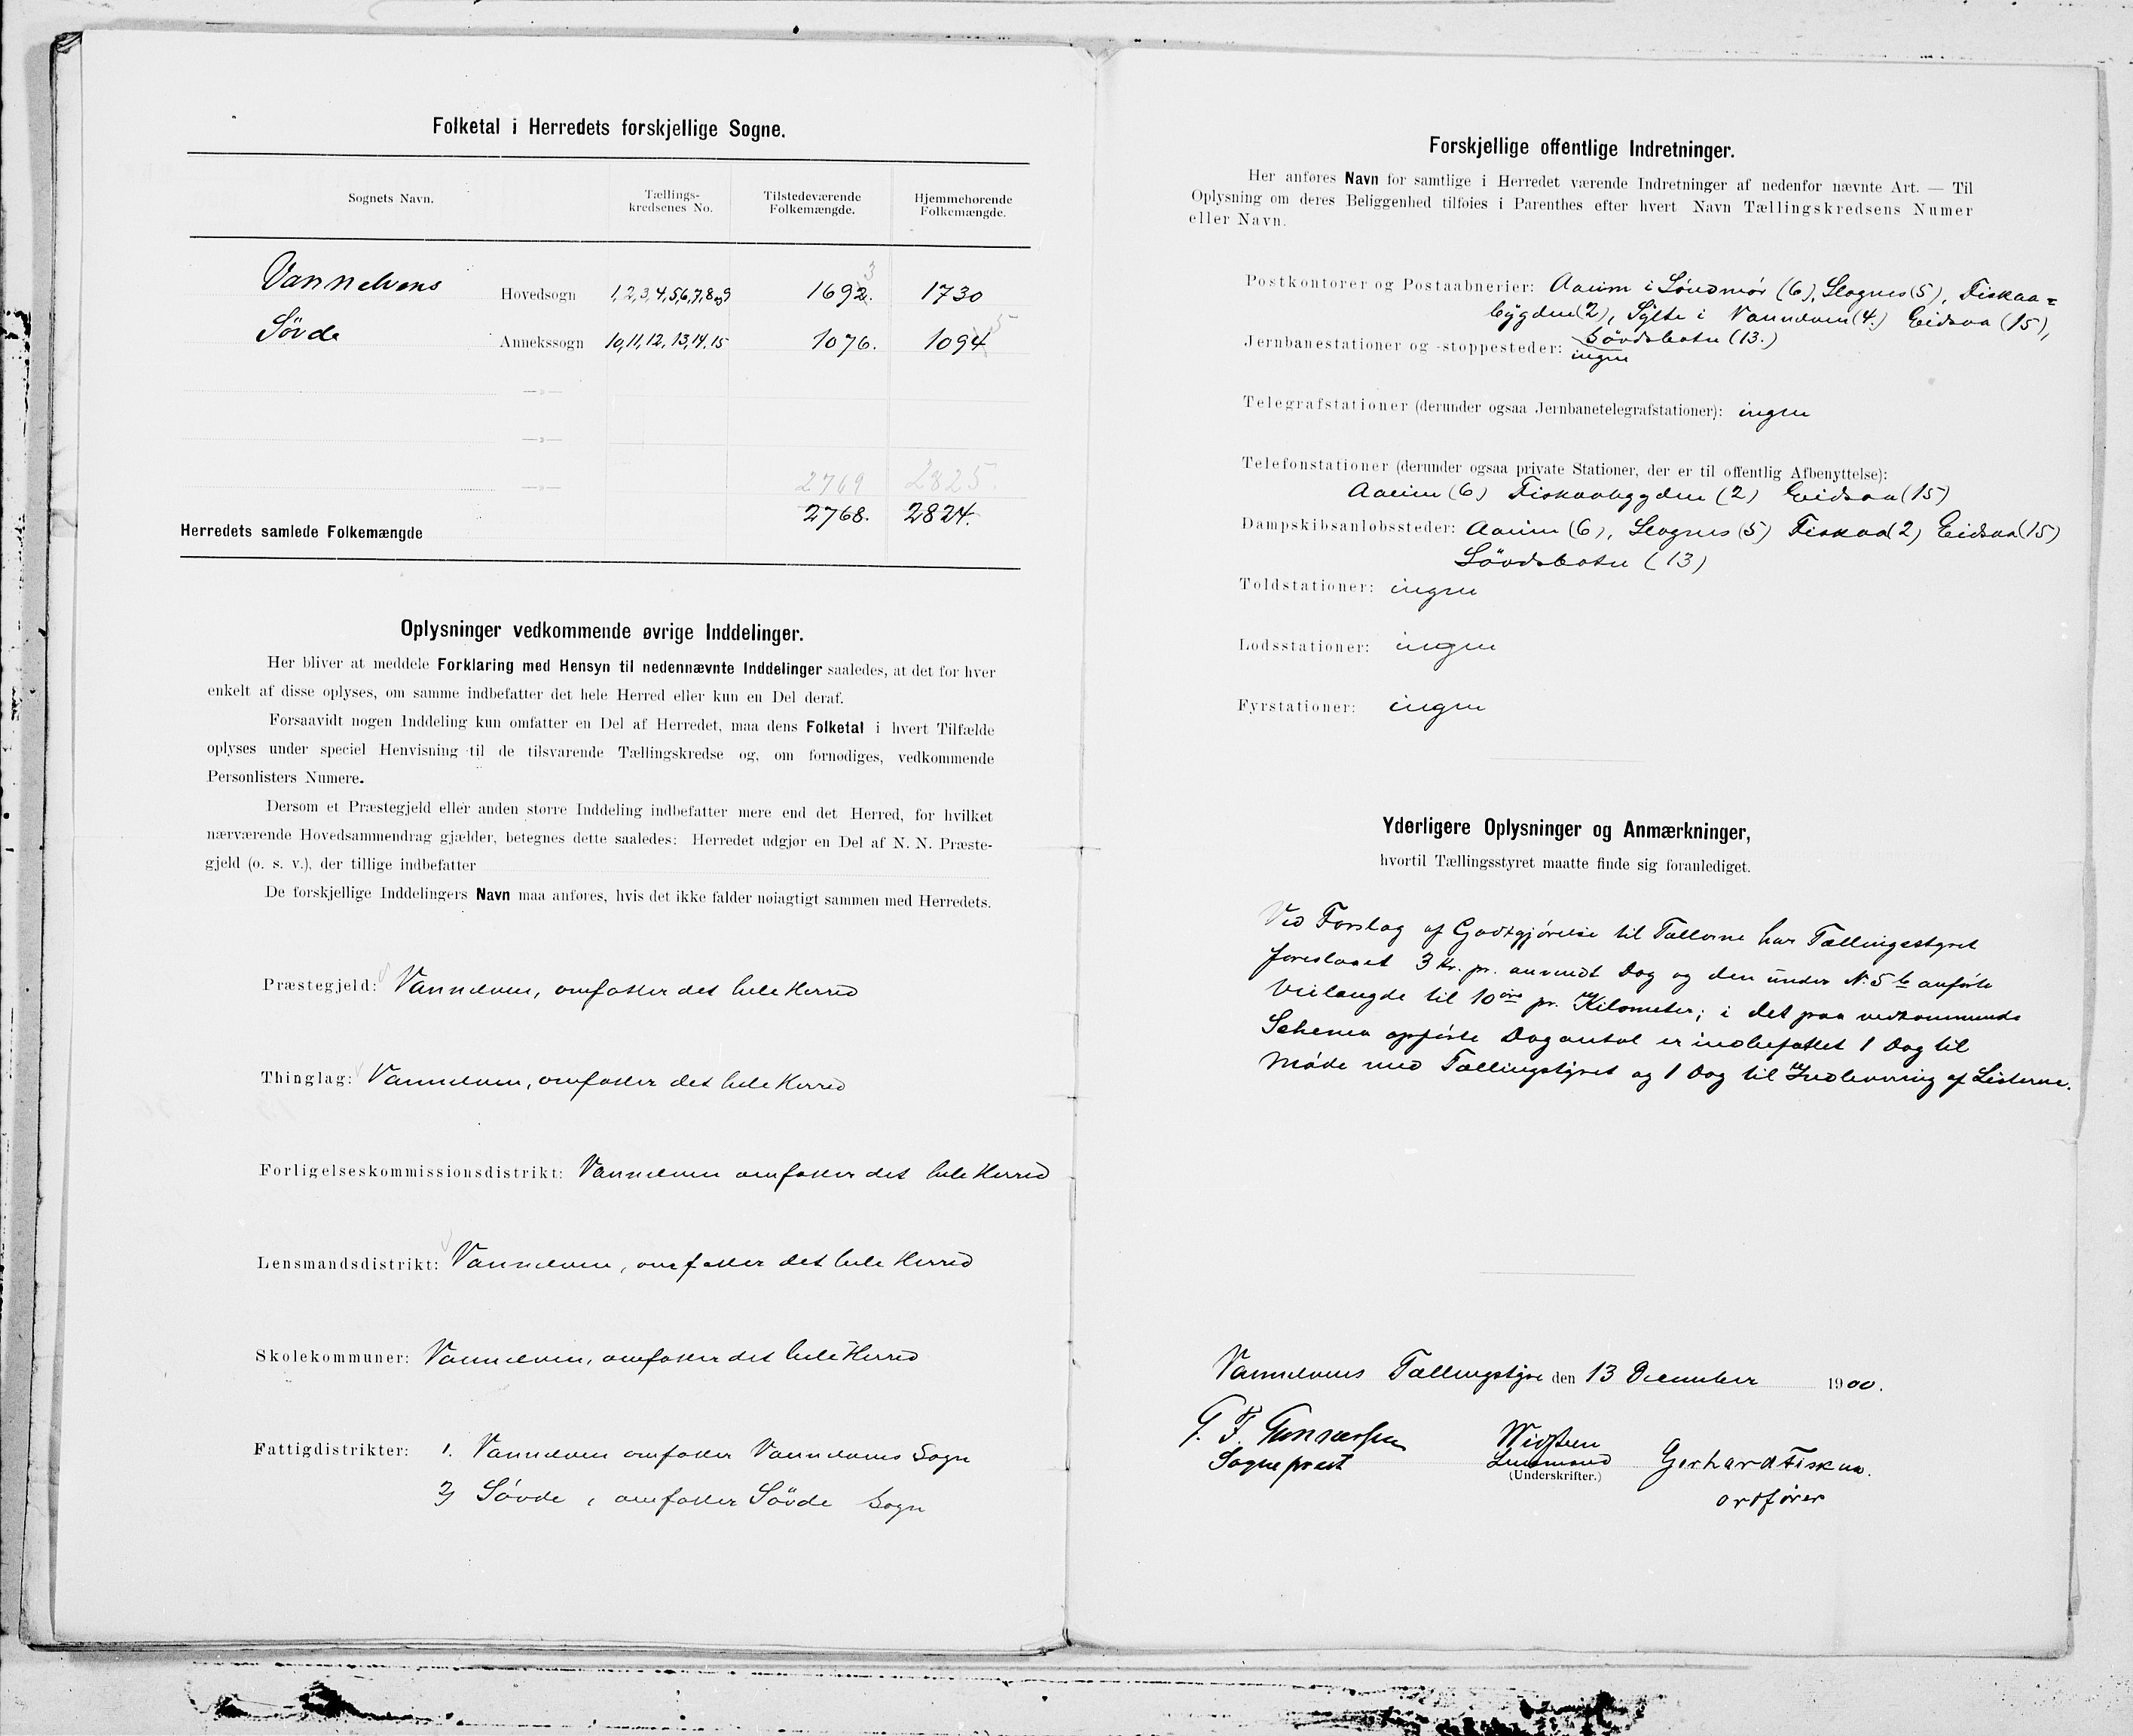 Folketal i Herredets forskjellige Sogne.
Sognets Navn.
Tællings-
kredsenes No.
Tilstedeværende
Folkemængde.
Hjemmehørende
Folkemængde.
Vannelvens Hovedsogn 1,2,3,4,5,6,7,8 og 9 1692. 3 1730
Søvde Annekssogn 10,11,12,13,14,15 1076. 1094 5
—»—
—»—
—»— 2769 2825.
Herredets samlede Folkemængde 2768. 2824.
Oplysninger vedkommende øvrige Inddelinger.
Her bliver at meddele Forklaring med Hensyn til nedennævnte Inddelinger saaledes, at det for hver
enkelt af disse oplyses, om samme indbefatter det hele Herred eller kun en Del deraf.
Forsaavidt nogen Inddeling kun omfatter en Del af Herredet, maa dens Folketal i hvert Tilfælde
oplyses under speciel Henvisning til de tilsvarende Tællingskredse og, om fornødiges, vedkommende
Personlisters Numere.
Dersom et Præstegjeld eller anden større Inddeling indbefatter mere end det Herred, for hvilket
nærværende Hovedsammendrag gjælder, betegnes dette saaledes: Herredet udgjør en Del af N. N. Præste-
gjeld (o. s. v.), der tillige indbefatter
De forskjellige Inddelingers Navn maa anføres, hvis det ikke falder nøiagtigt sammen med Herredets.
Præstegjeld: Vannelven, omfatter det hele Herred
Thinglag: Vannelven, omfatter det hele Herred
Forligelseskommissionsdistrikt: Vannelven omfatter det hele Herred
Lensmandsdistrikt: Vannelven, omfatter det hele Herred
Skolekommuner: Vannelven, omfatter det hele Herred
Fattigdistrikter: 1. Vannelven omfatter Vannelvens Sogn
2) Søvde, omfatter Søvde Sogn
Forskjellige offentlige Indretninger.
Her anføres Navn for samtlige i Herredet værende Indretninger af nedenfor nævnte Art. — Til
Oplysning om deres Beliggenhed tilføies i Parenthes efter hvert Navn Tællingskredsens Numer
eller Navn.
Postkontorer og Postaabnerier: Aaeim i Søndmør (6), Slagnes (5), Fiskaa=
bygden (2), Sylte i Vannelven (4.) Eidsaa (15),
Søvdsbotn (13.)
Jernbanestationer og -stoppesteder: ingen
Telegrafstationer (derunder ogsaa Jernbanetelegrafstationer): ingen
Telefonstationer (derunder ogsaa private Stationer, der er til offentlig Afbenyttelse):
Aaeim (6) Fiskaabygden (2) Eidsaa (15)
Dampskibsanløbssteder: Aaeim (6), Slagnes (5) Fiskaa (2) Eidsaa (15)
Søvdsbotn (13)
Toldstationer: ingen
Lodsstationer: ingen
Fyrstationer: ingen
Yderligere Oplysninger og Anmærkninger,
hvortil Tællingsstyret maatte finde sig foranlediget.
Ved Forslag af Godtgjørelse til Tællerne har Tællingsstyret
foreslaaet 3 Kr. pr. anvendt Dag og den under N. 5 b anførte
Veilængde til 10 øre pr. Kilometer; i det paa vedkommende
Schema opførte Dagantal er indbefattet 1 Dag til
Møde med Tællingstyret og 1 Dag til Indlevering af Listerne.
Vannelvens Tællingstyre den 13 December 1900.
Sogneprest
Lensmand
(Underskrifter.)
Gerhard Fiskaa.
ordfører